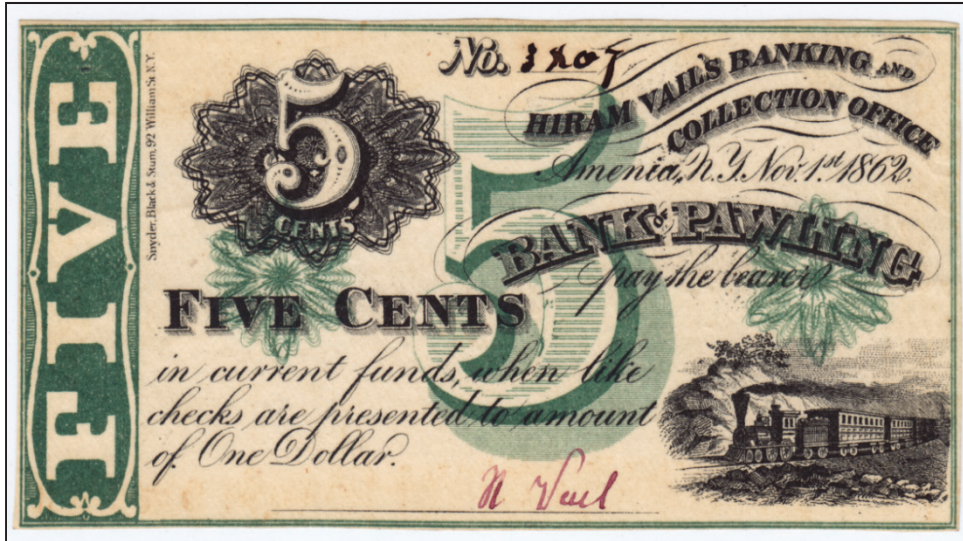 FIVE
Snyder, Black & Sturn, 92 William St. N.Y.
5
CENTS
No.
HIRAM VAIL'S BANKING AND
COLLECTION OFFICE
Amenia, N.Y. Nov. 1st 1862.
5
BANK OF PAWLING
pay the bearer
FIVE CENTS
in current funds, when like
checks are presented to amount
of One Dollar.
H Vail